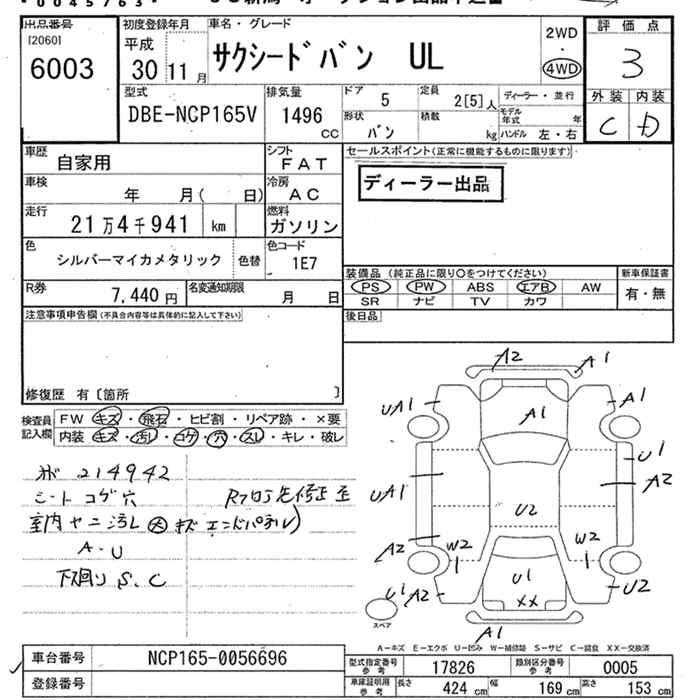 0045763
出品番号
[2060]
6003
初度登録年月
平成
30 11 月
車名・グレード
サクシードバン UL
2WD
・
4WD
評価点
3
外装 内装
C D
型式
DBE-NCP165V
排気量
1496
CC
ドア
5
定員
2[5]人
形状
バン
積載
kg
ディーラー・並行
モデル年式 年
ハンドル 左・右
車歴
自家用
シフト
FAT
セールスポイント(正常に機能するものに限ります)
ディーラー出品
車検
年 月( 日)
冷房
AC
走行
21万4千941 km
燃料
ガソリン
色
シルバーマイカメタリック
色替
色コード
1E7
R券
7,440 円
名変通知期限
月 日
装備品 (純正品に限り○をつけてください)
PS PW ABS エアB AW
SR ナビ TV カワ
新車保証書
有・無
注意事項申告欄(不具合内容等は具体的に記入して下さい)
後日品
修復歴 有〔箇所 〕
検査員記入欄
FW キズ・飛石・ヒビ割・リペア跡・×要
内装 キズ・汚れ・コゲ・穴・スレ・キレ・破レ
214942
シート コゲ穴
室内 ヤニ 汚レ 大 キズ エンドパネル)
A・U
下回り S、C
A2
A1
UA1
A1
A1
U1
A2
UA1
U2
A2
W2
W2
U1
U1
A2
U2
XX
A1
スペア
A-キズ E-エクボ U-凹み W-補修跡 S-サビ C-腐食 XX-交換済
車台番号
NCP165-0056696
登録番号
型式指定番号 参考
17826
類別区分番号 参考
0005
車庫証明用 参考
長さ 424 cm 幅 169 cm 高さ 153 cm